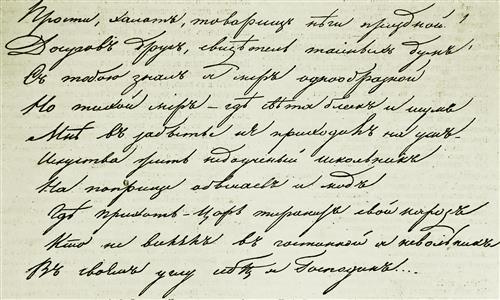 Прости, халатъ, товарищъ нѣги праздной!
Досуговъ другъ, свидѣтель тайныхъ думъ!
Съ тобою зналъ я міръ однообразной
Но тихій міръ – гдѣ свѣта блескъ и шумъ
Мнѣ въ забытьѣ не приходилъ на умъ.
Искуства жить недоученый школьникъ
На поприщѣ обычаевъ и модъ
Гдѣ прихоть – Царь тиранитъ свой народъ
Кто не видѣлъ въ гостинной я невольникъ
Въ своемъ углу себѣ я Господинъ...